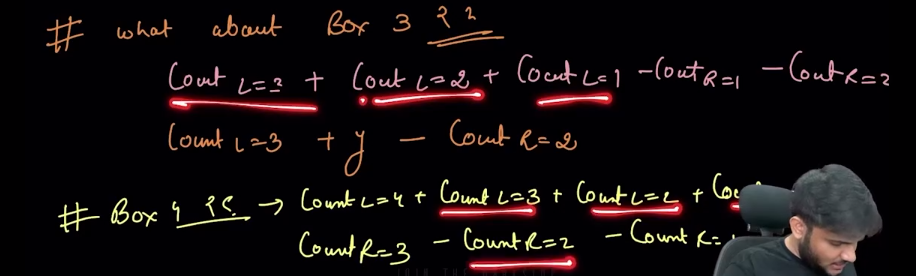 # what about Box 3 ??
Count L=3 + Count L=2 + Count L=1 - Count R=1 - Count R=2
Count L=3 + y - Count R=2
# Box 4 ?? → Count L=4 + Count L=3 + Count L=2 +
Count R=3 - Count R=2 - Count R=